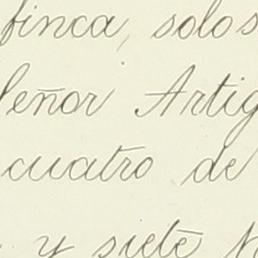 finca, solos
Señor Artig
cuatro de
y siete